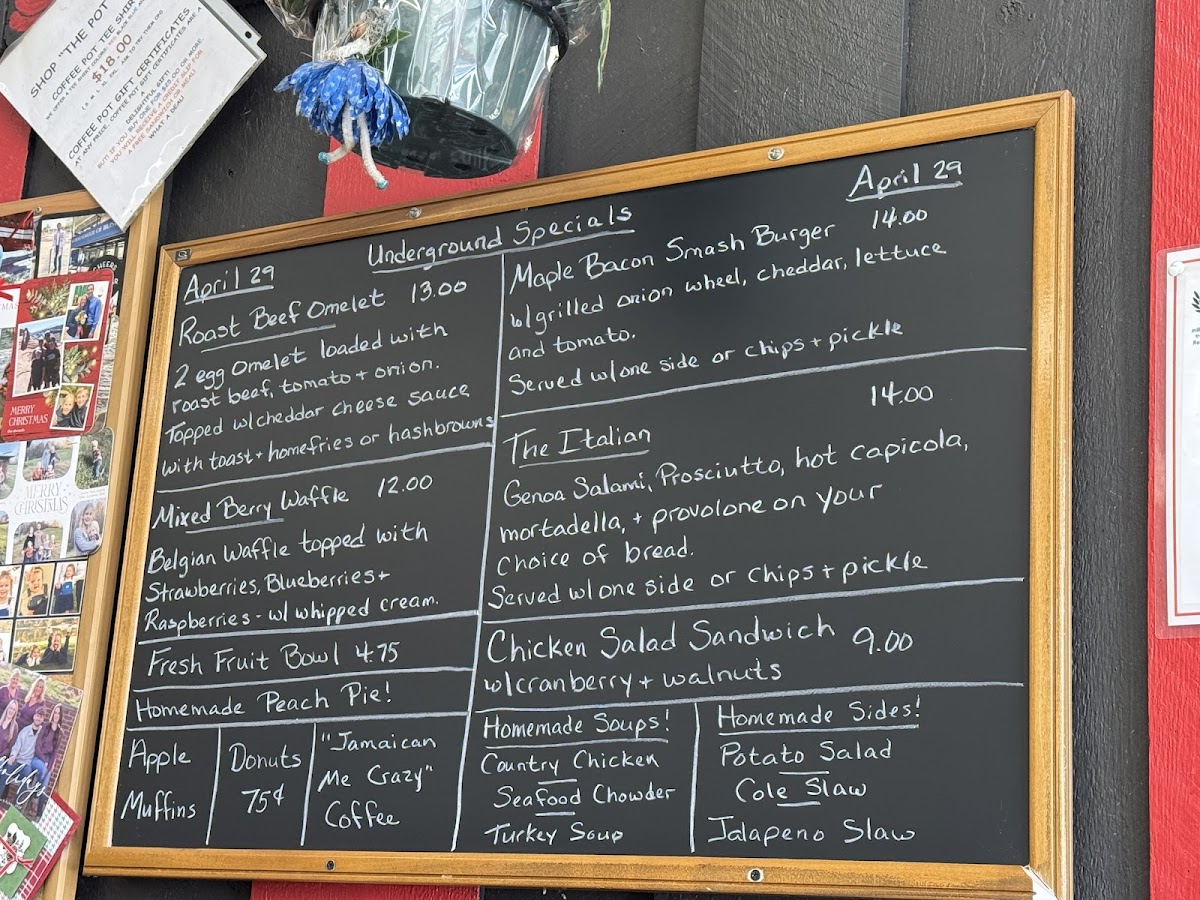 SHOP "THE POT
COFFEE POT TEE SHIR
$18.00
COFFEE POT GIFT CERTIFICATES
AT ANY PRICE, COFFEE POT GIFT CERTIFICATES ARE A
DELIGHTFUL GIFT!
BUT! IF YOU BUY ONE FOR $25.00 OR MORE,
YOU WILL RECEIVE A CREDIT SLIP FOR
A FREE SANDWICH OR MEAL!
WHAT A DEAL!
MERRY
CHRISTMAS
MERRY
CHRISTMAS
Underground Specials
April 29
Roast Beef Omelet 13.00
2 egg omelet loaded with
roast beef, tomato + onion.
Topped w/cheddar cheese sauce
with toast + homefries or hashbrowns
Mixed Berry Waffle 12.00
Belgian Waffle topped with
Strawberries, Blueberries +
Raspberries - w/ whipped cream.
Fresh Fruit Bowl 4.75
Homemade Peach Pie!
Apple
Muffins
Donuts
75¢
"Jamaican
Me Crazy"
Coffee
April 29
Maple Bacon Smash Burger 14.00
w/grilled onion wheel, cheddar, lettuce
and tomato.
Served w/one side or chips + pickle
14.00
The Italian
Genoa Salami, Prosciutto, hot capicola,
mortadella, + provolone on your
choice of bread.
Served w/one side or chips + pickle
Chicken Salad Sandwich 9.00
w/cranberry + walnuts
Homemade Soups!
Country Chicken
Seafood Chowder
Turkey Soup
Homemade Sides!
Potato Salad
Cole Slaw
Jalapeno Slaw